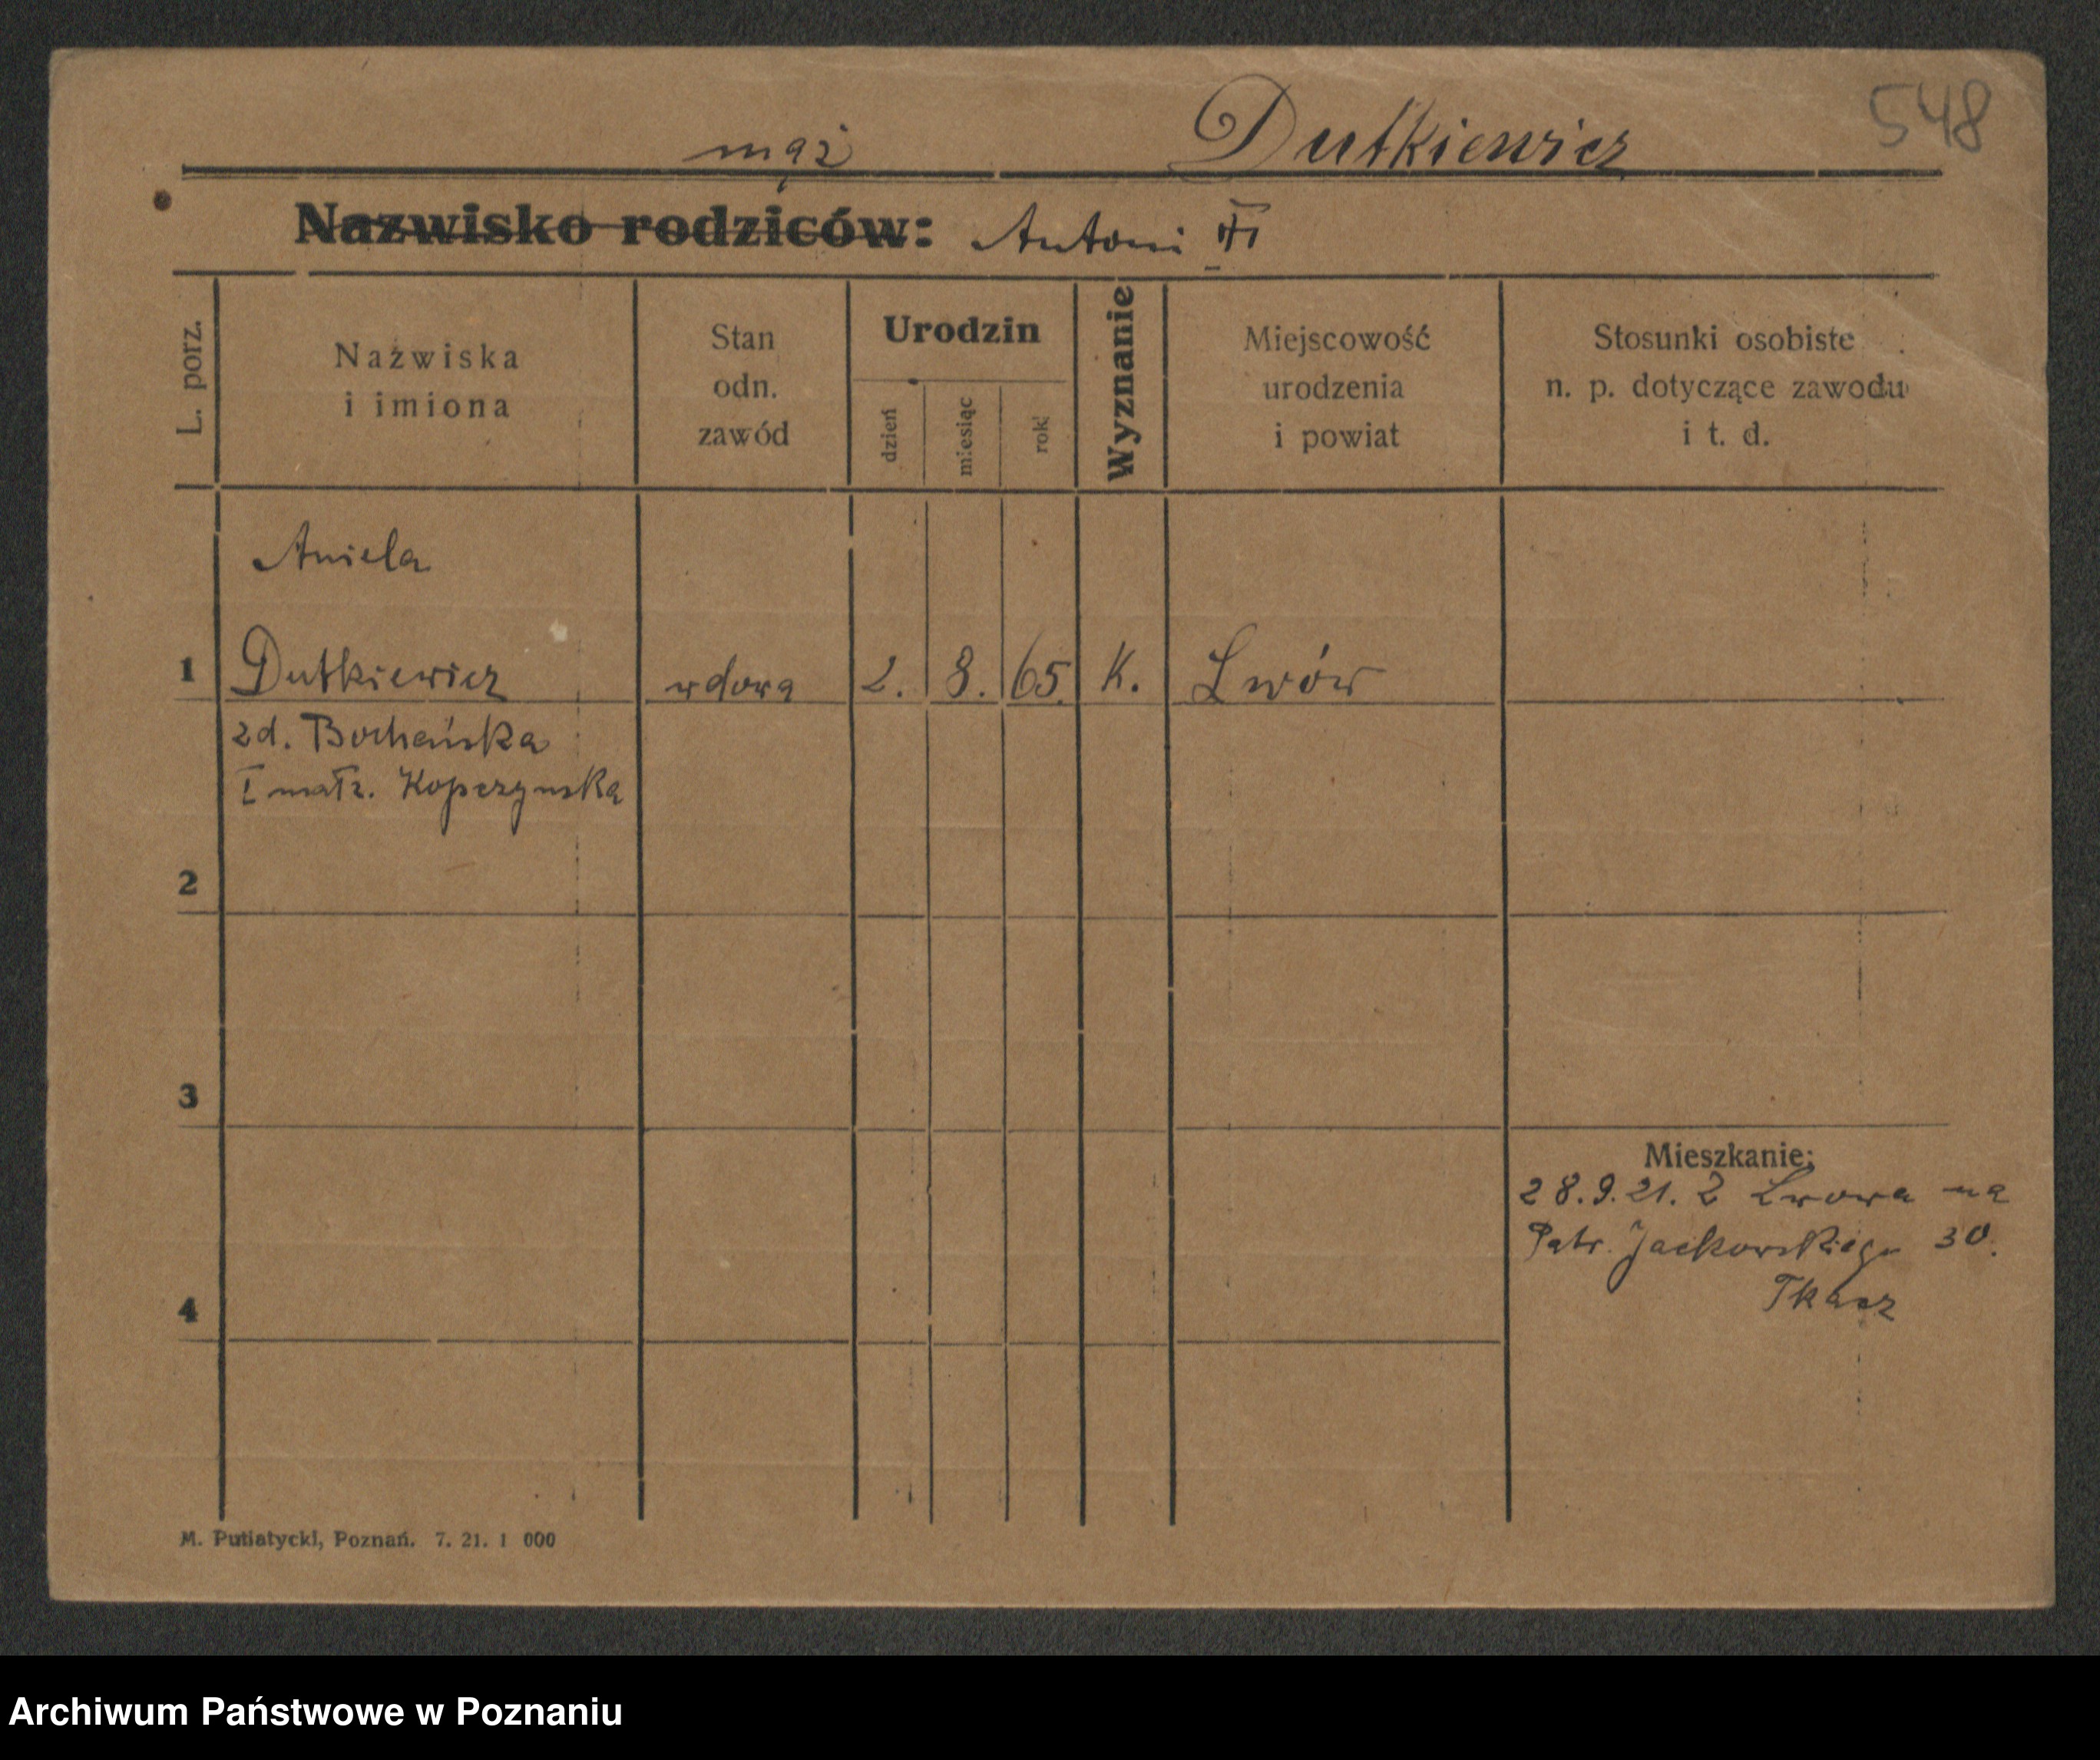 548
mąż Dutkiewicz
Nazwisko rodziców: Antoni
L. porz.
Nazwiska i imiona
Stan odn. zawód
Urodzin
dzień
miesiąc
rok
Wyznanie
Miejscowość urodzenia i powiat
Stosunki osobiste n. p. dotyczące zawodu i t. d.
Aniela
1 Dutkiewicz wdowa 2. 8. 65. K. Lwów
zd. Bochańska
I małż. Kopczynska
2
3
Mieszkanie:
28.9.21. Z Lwowa na
Patr. Jackowskiego 30.
Tkacz
4
M. Putiatycki, Poznań. 7. 21. 1 000
Archiwum Państwowe w Poznaniu